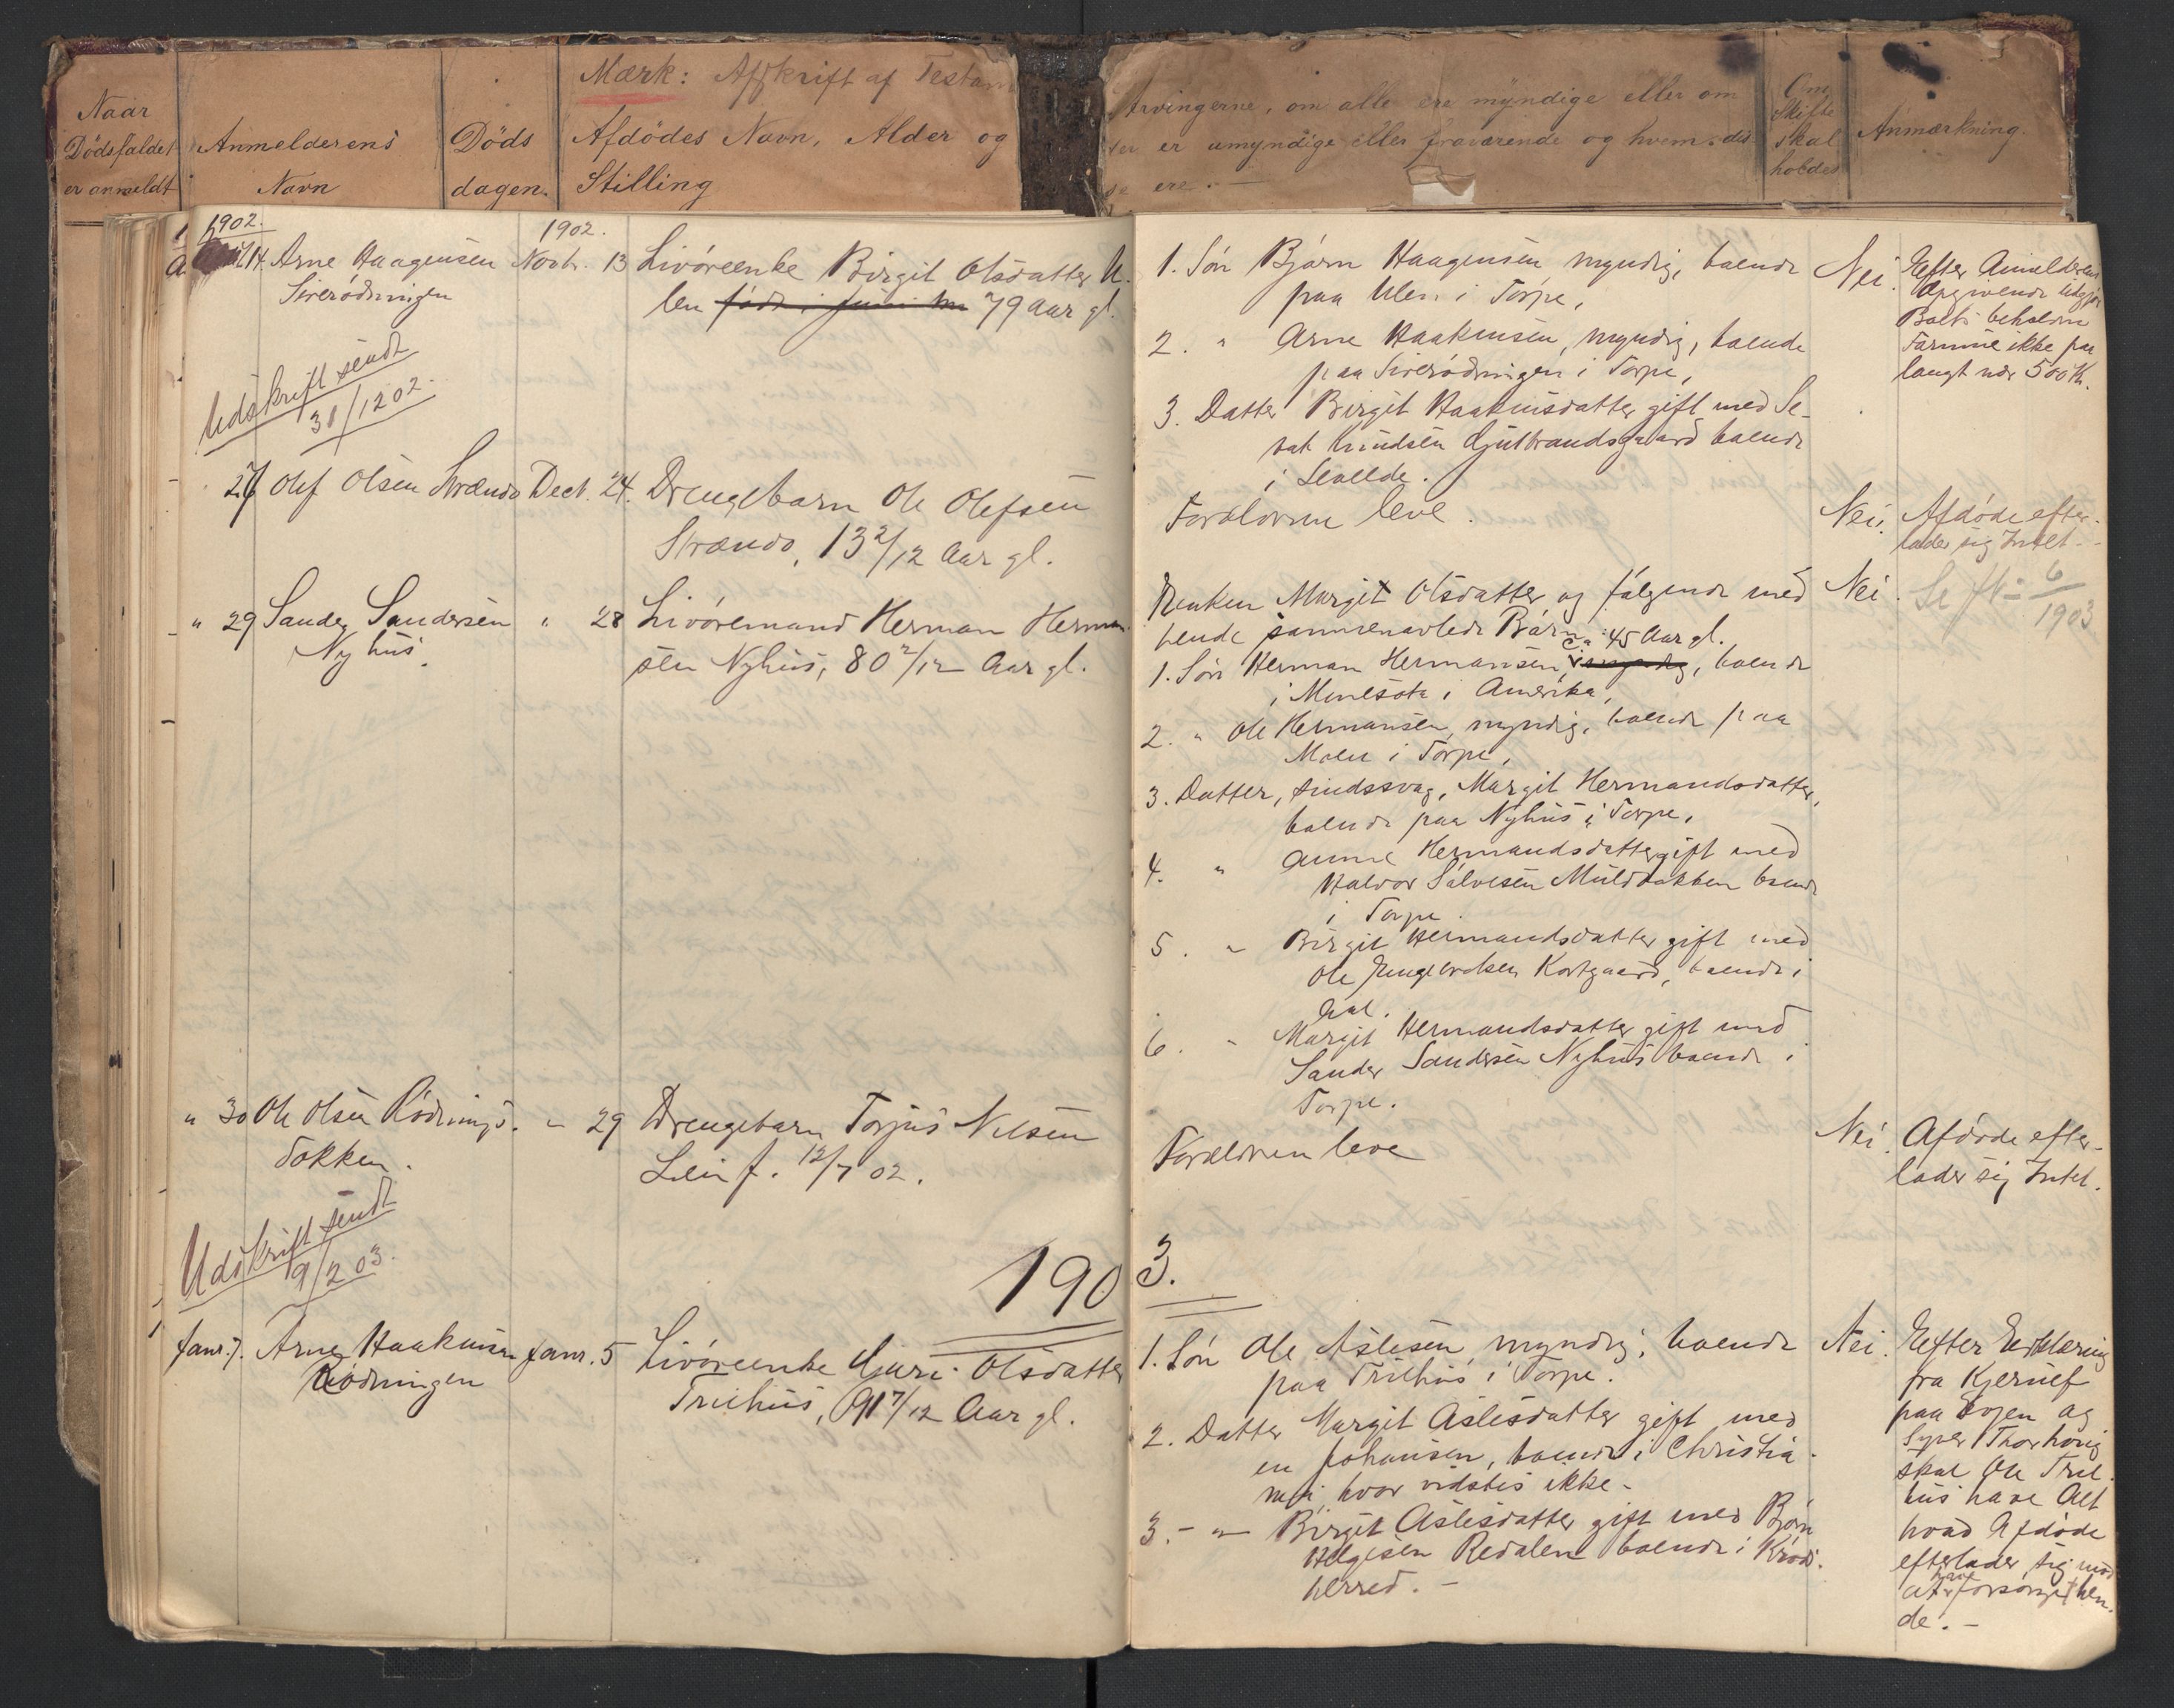 Mærk: Afskrift af Testam
Naar
Dødsfaldet
er anmeldt
Anmelderens
Navn
Døds
dagen.
Afdødes Navn, Alder og
Stilling
Arvingerne, om alle ere myndige eller om
er umyndige eller fraværende og hvem dis
se ere. —
Om
Skifte
skal
holdes
Anmærkning.
1902.
1902.
14. Arne Haagensen
Novbr. 13
Livøreenke Birgit Olsdatter U-
len født i Juni 79 Aar gl.
Udskrift sendt
30/12 02.
27 Olef Olsen Strando
Decb. 24.
Drengebarn Ole Olefsen
Strando, 13 2/12 Aar gl.
" 29 Sander Sandersen
Nyhus.
" 28
Livøremand Herman Herman-
sen Nyhus, 80 2/12 Aar gl.
" 30 Ole Olsen Rødnings-
dokken.
" 29
Drengebarn Torjus Nilsen
Lein f. 12/7 02.
Udskrift sendt
9/2 03.
190
Janr. 7. Arne Haakensen
Rødningen
Janr. 5
Livøreenke Guri Olsdatter
Truhus, 91 7/12 Aar gl.
1. Søn Bjørn Haagensen myndig, boende
paa Ulen i Torpe,
2. " Arne Haakensen, myndig, boende
paa i Torpe,
3. Datter Birgit Haakensdatter gift med Se-
vat Knudsen Gulbrandsgaard boende
i
Nei.
Efter Anmelderens
Opgivende udgjør
Boets beholdne
Formue ikke paa
langt nær 500 Kr.
Forældrene leve.
Nei.
Afdøde efter-
lader sig Intet.
Enken Margit Olsdatter og følgende med
hende sammenavlede Børn:
1. Søn Herman Hermansen, ca 45 Aar gl., boende
i Minesota i Amerika,
2. " Ole Hermansen, myndig, boende paa
Moen i Torpe,
3. Datter, sindssvag, Margit Hermandsdatter,
boende paa Nyhus i Torpe,
4. " Anne Hermandsdatter gift med
Halvor Salvesen Muldbakken boende
i Torpe.
5. " Birgit Hermandsdatter gift med
Ole Engebretsen Kortgaard, boende i
Aal.
6. " Margit Hermandsdatter gift med
Sander Sandersen Nyhus boende i
Torpe.
Nei.
6/1903
Forældrene leve
Nei.
Afdøde efter-
lader sig Intet.
3.
1. Søn Ole Aslesen, myndig, boende
paa Truhus i Torpe.
2. Datter Margit Aslesdatter gift med
en Johansen, boende i Christia-
nia, hvor vidstes ikke.
3. - " - Birgit Aslesdatter gift med Bjørn
Helgesen Redalen boende i Krøds-
herred. -
Nei.
Efter Erklæring
fra
paa og
skal Ole Tru-
hus have Alt
hvad Afdøde
efterlader sig mod
at have forsørget hen-
de. -